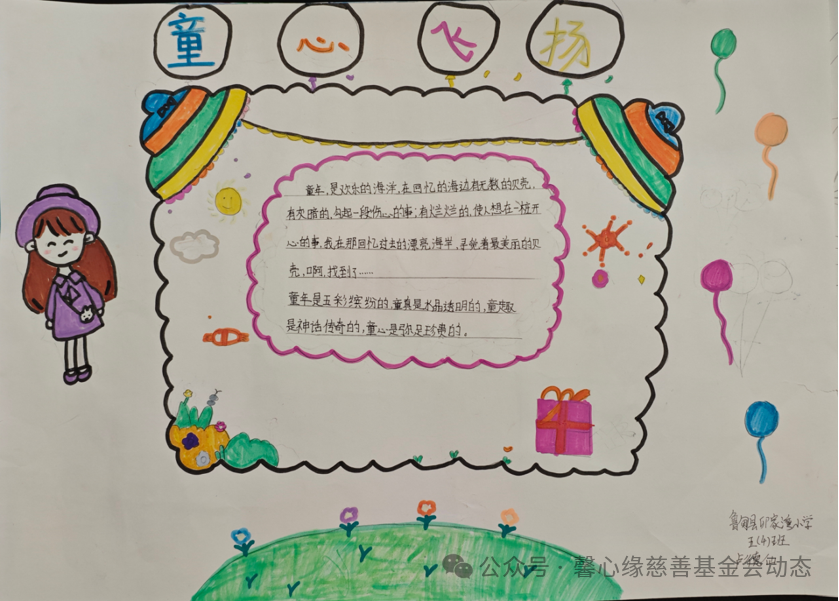 童心飞扬
童年,是欢乐的海洋,在回忆的海边有无数的贝壳,
有灰暗的,勾起一段伤心的事;有烂烂的,使人想在一桩开
心的事,我在那回忆过去的漂亮海岸,寻觅着最美丽的贝
壳,啊,找到了……
童年是五彩缤纷的,童真是水晶透明的,童趣
是神话传奇的,童心是弥足珍贵的。
鲁甸县 小学
五(4)班
公众号·馨心缘慈善基金会动态